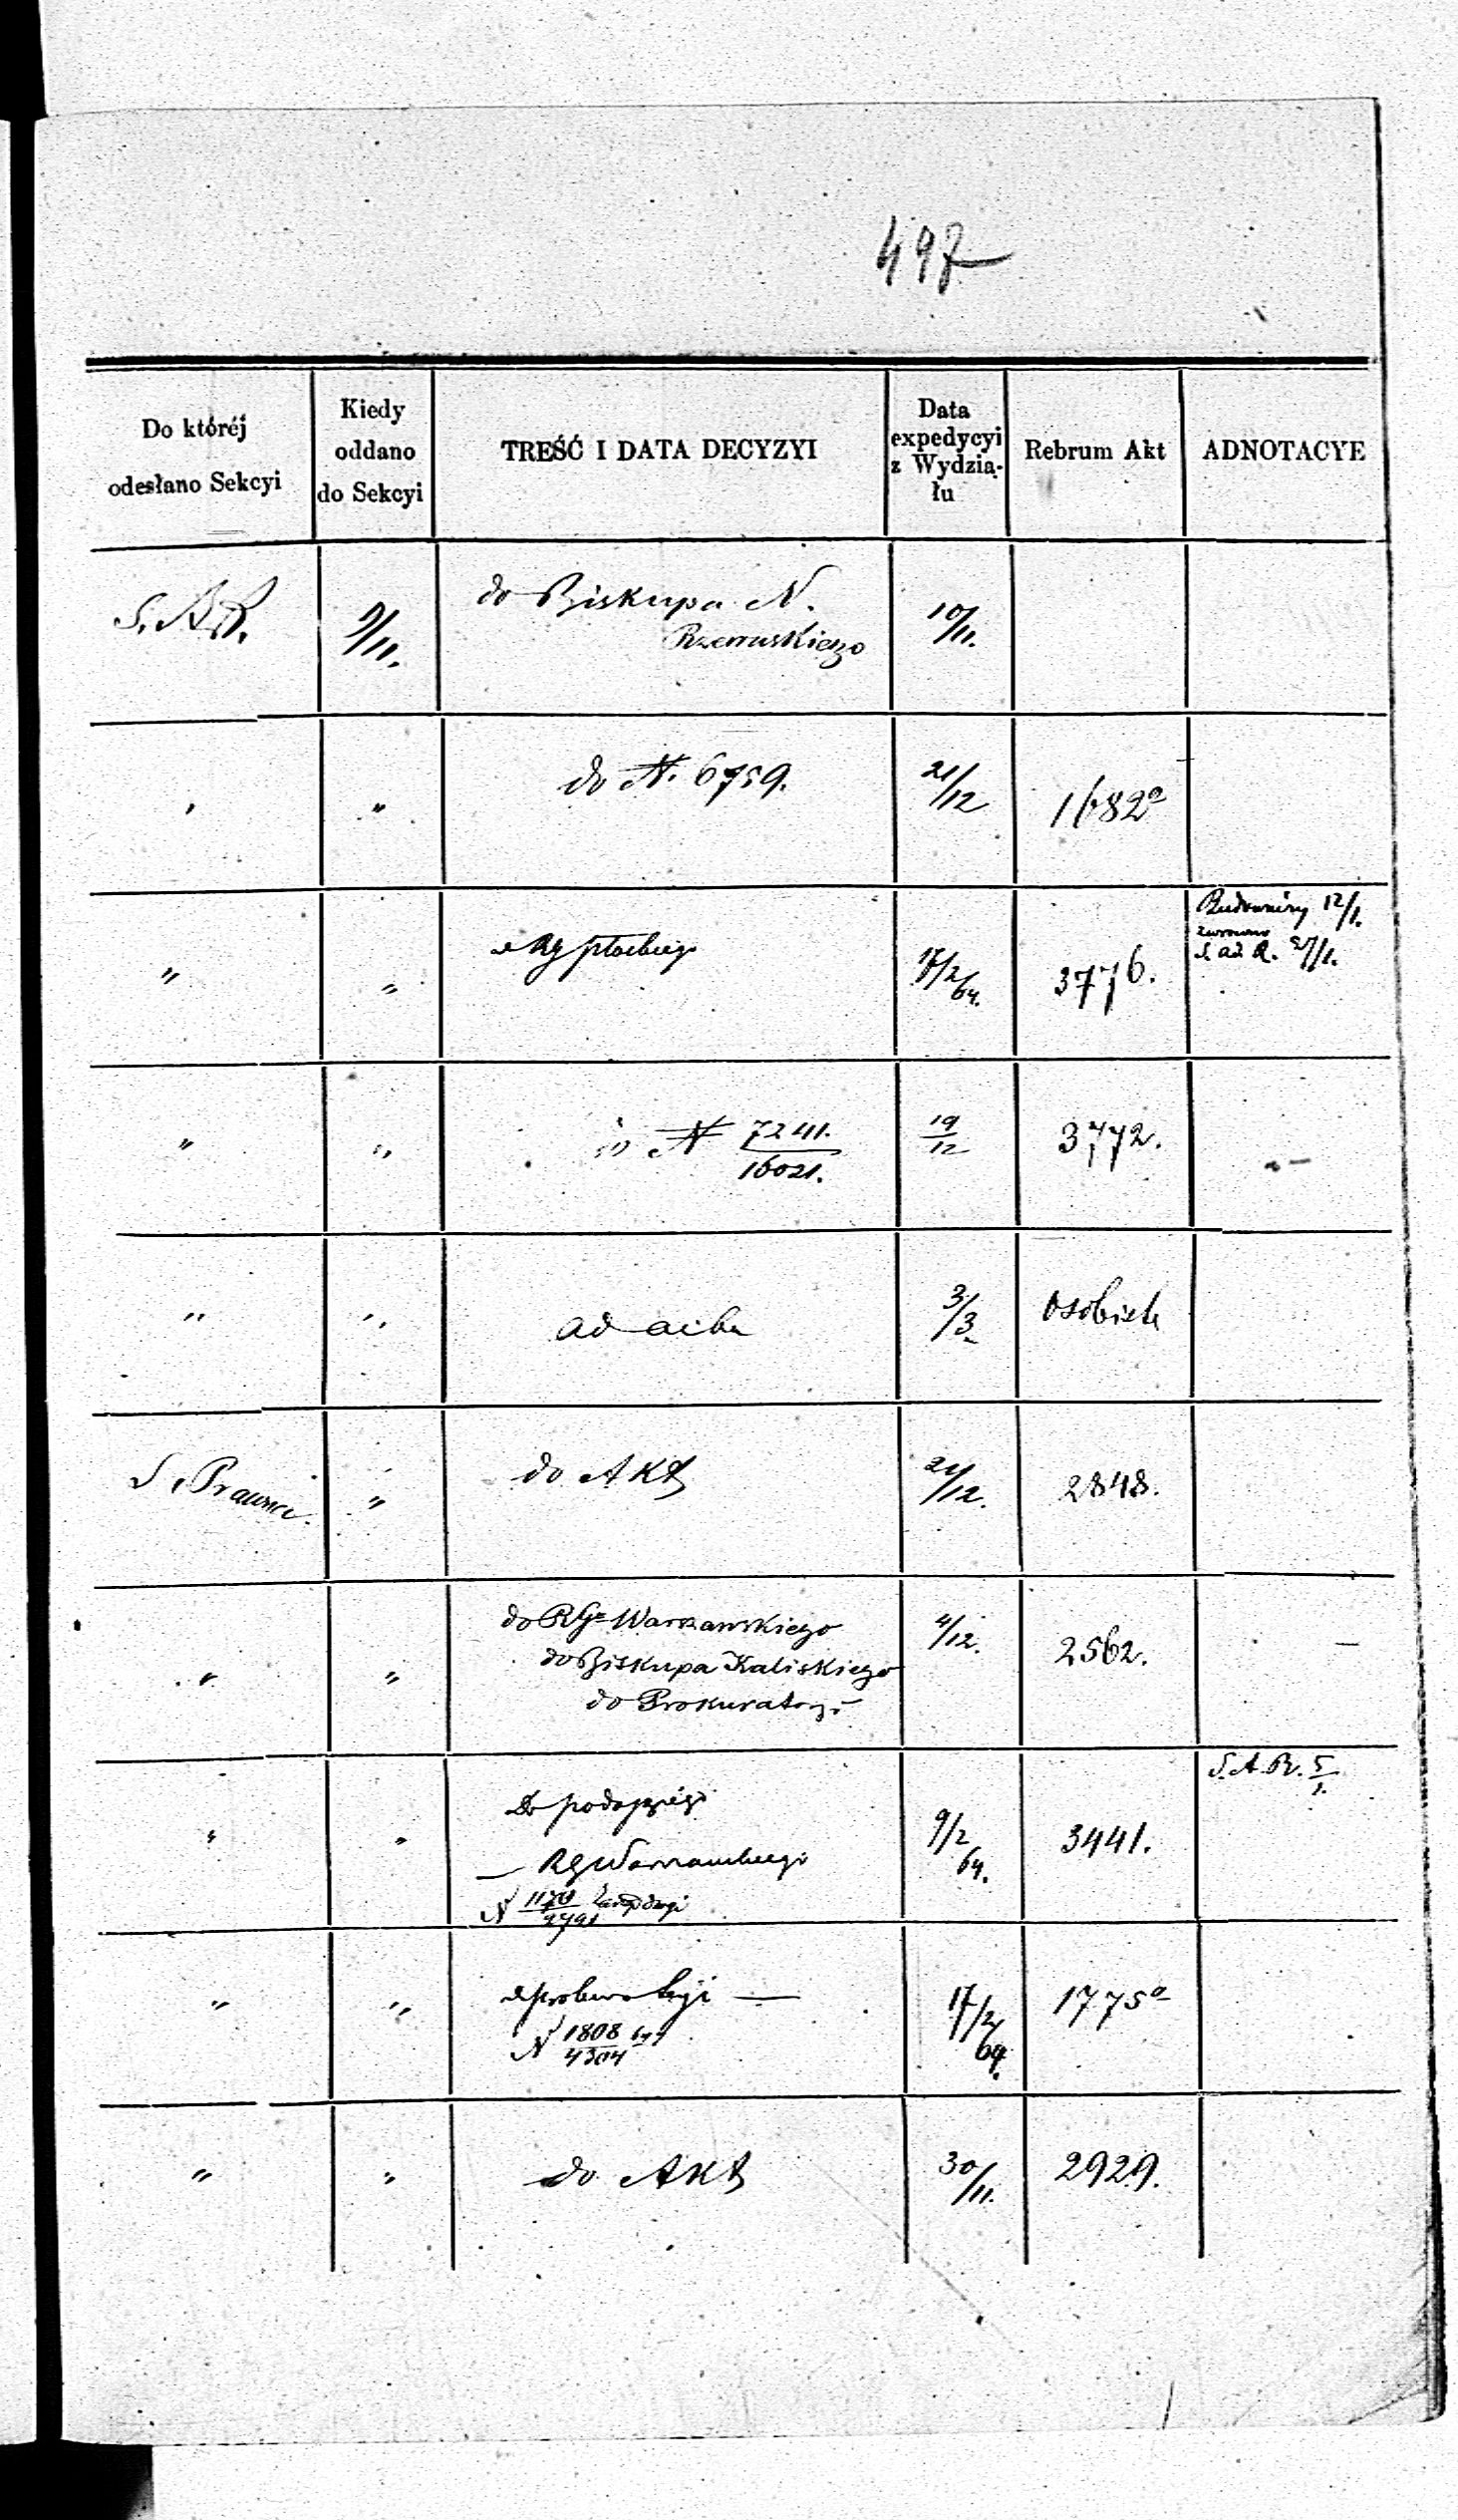 497
Do któréj
odesłano Sekcyi
Kiedy
oddano
do Sekcyi
TREŚĆ I DATA DECYZYI
Data
expedycyi
z Wydzia-
łu
Rebrum Akt
ADNOTACYE
S. A. R.
9/11.
do Biskupa N.
10/11.
"
"
do N. 6759.
21/12
1682a
"
"
RG Płockiego
17/2 64.
3776.
12/1.
S. ad R. 27/1.
"
"
do N 7241./16021.
19/12
3772.
"
"
ad acta
3/3
osobiste
S. Prawna.
"
do Akt
21/12.
2848.
"
"
do RGo Warszawskiego
do Biskupa Kaliskiego
do Prokuratoryi
4/12.
2562.
"
"
RG Warszawskiego
N
9/2 64.
3441.
S. A. R. 5/1.
"
"
N 1808/4304
17/2 64.
1775a
"
"
do Akt
30/11.
2929.